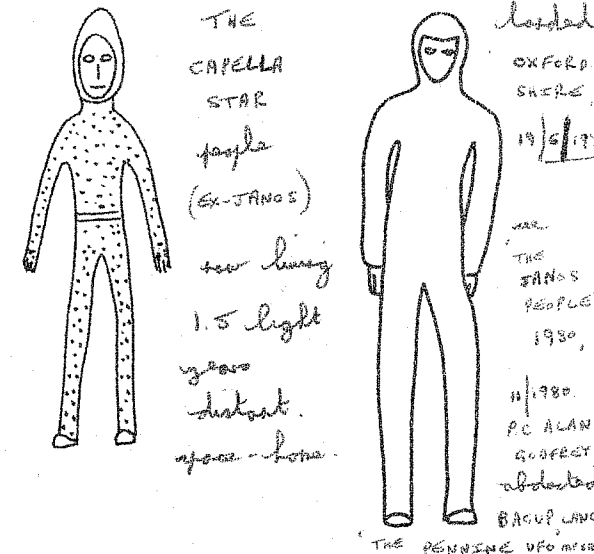 THE
CAPELLA
STAR
people
(EX-JANOS)
now living
1.5 light
years
distant.
space-home.
landed
OXFORD
SHIRE,
19/6/19
THE
JANOS
PEOPLE
1980,
11/1980.
P.C ALAN
GODFREY
abducted
BACUP LANC
'THE PENNINE UFO